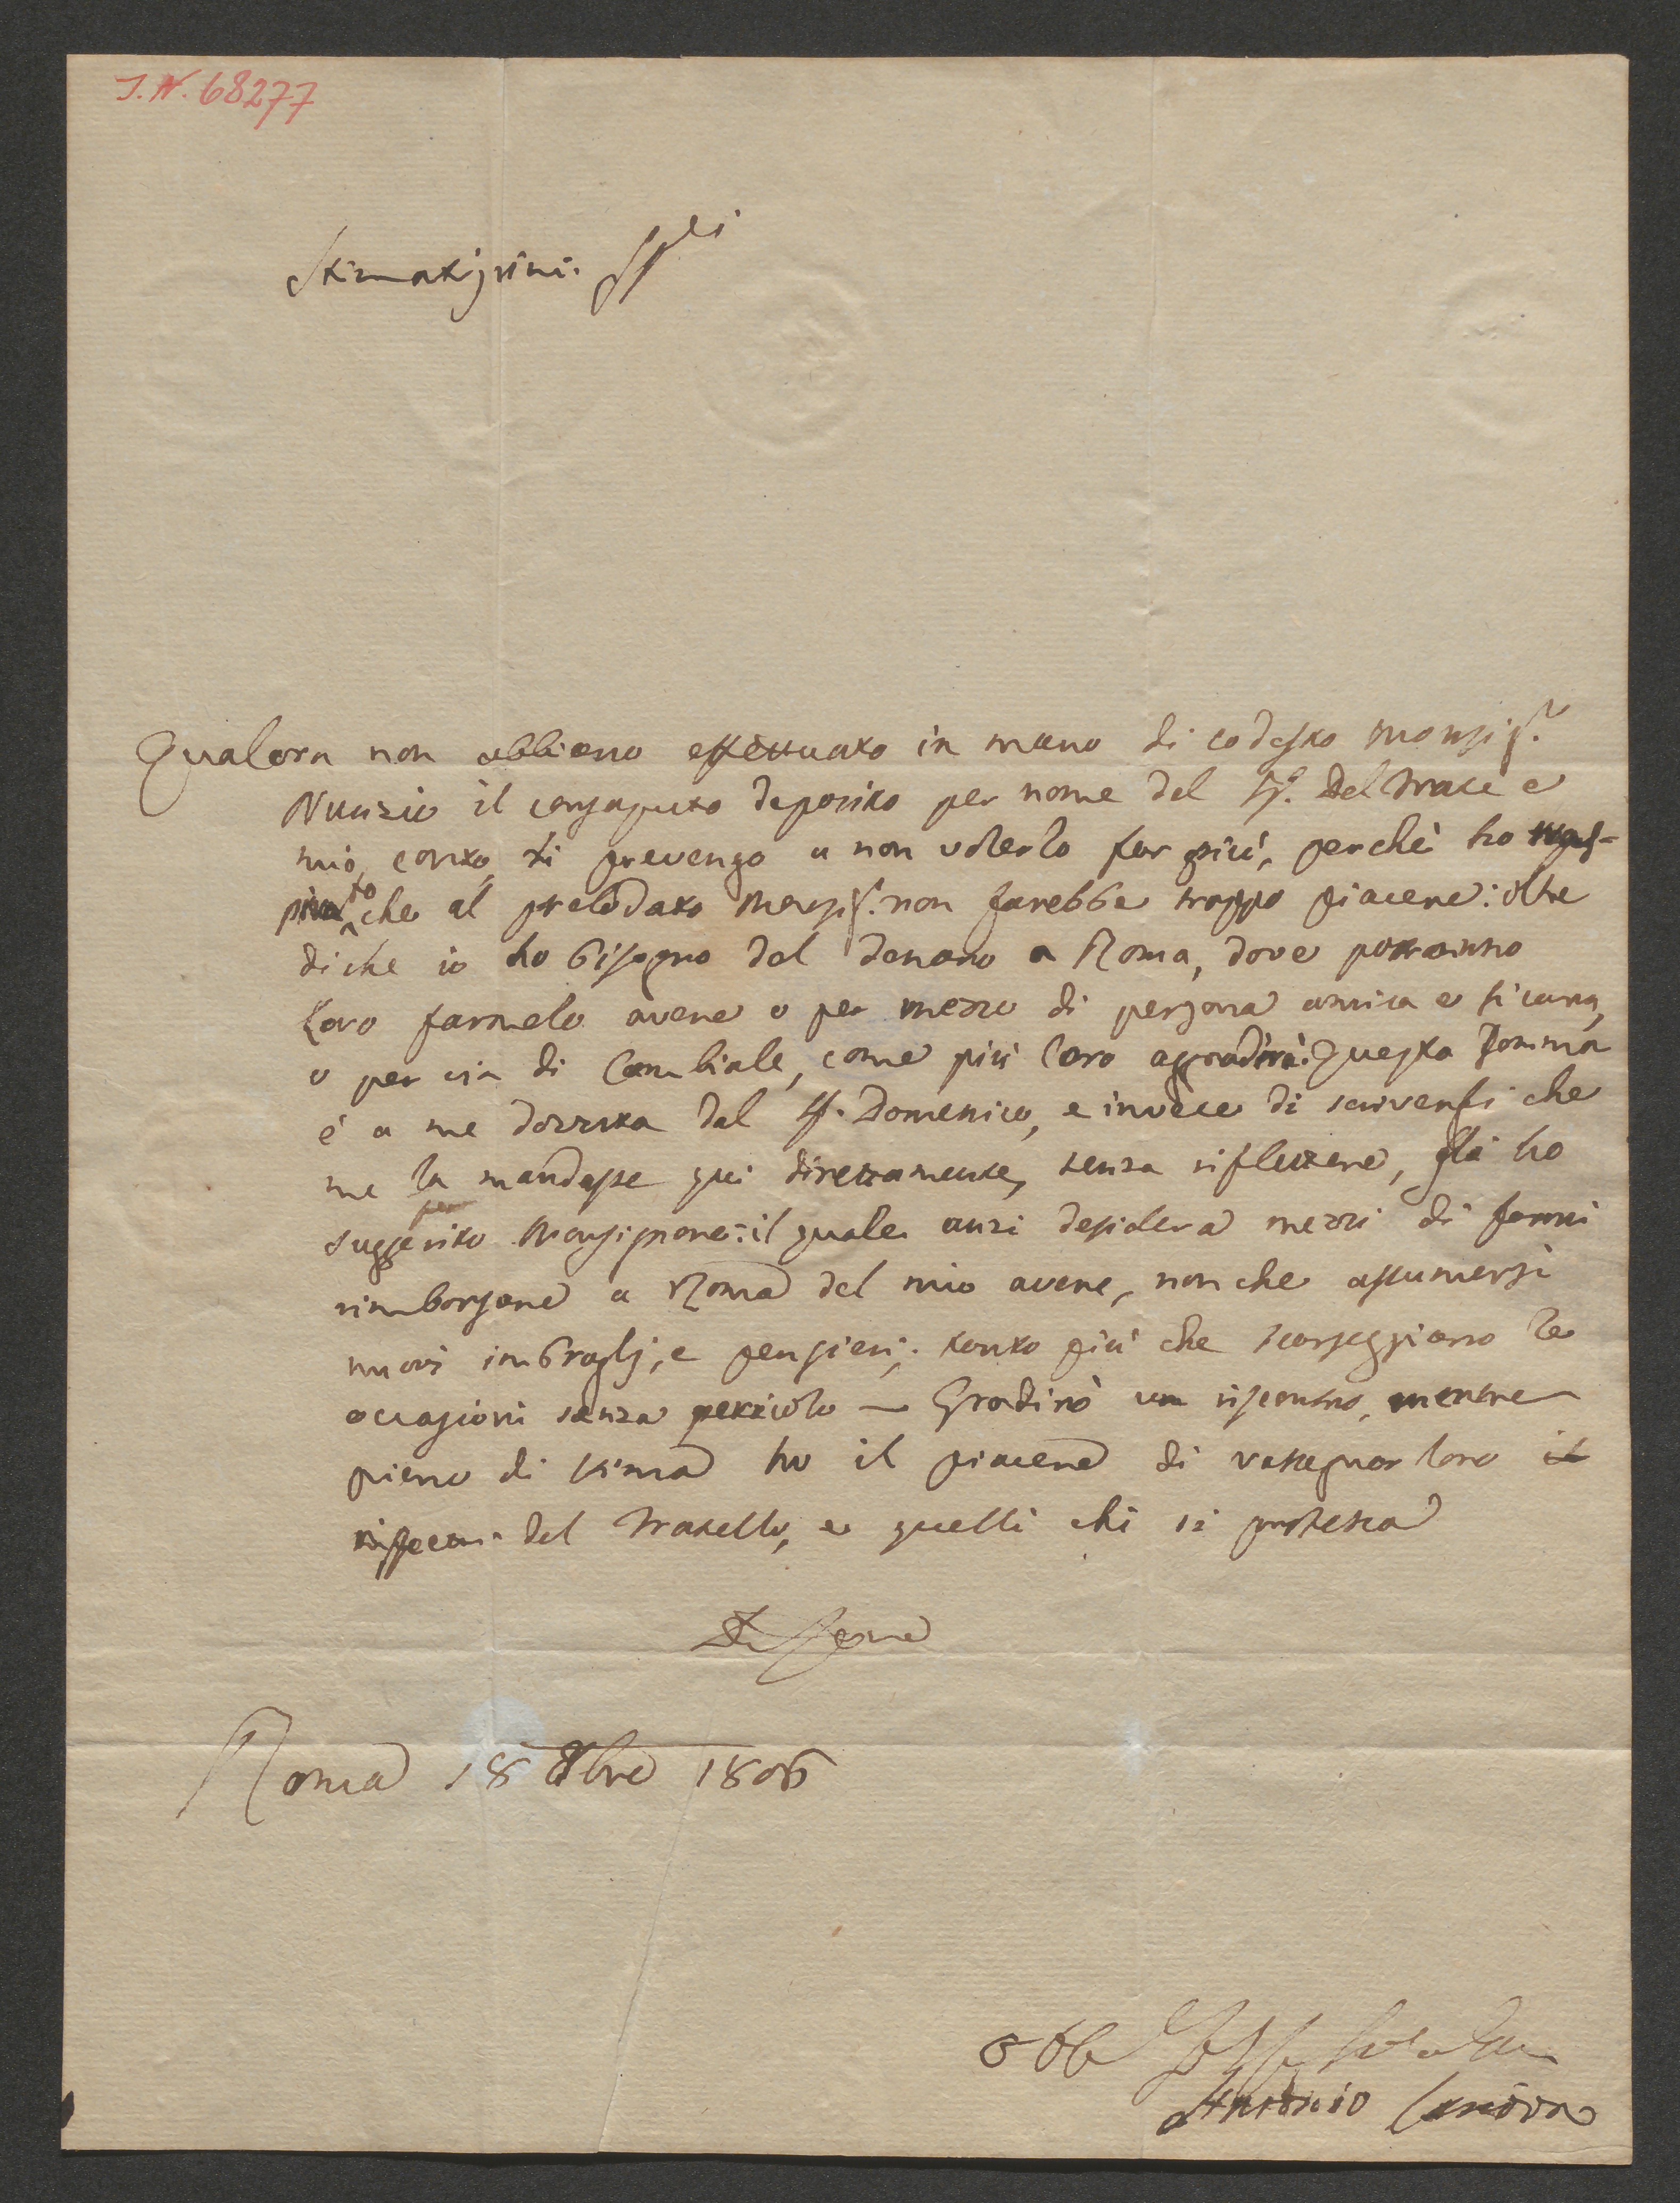 I.N. 68277
Stimatissimi Sig.ri
Qualora non abbiano effettuato in mano di codesto Monsig.r
Nunzio il consaputo deposito per nome del Sig. Del Frate e
mio conto, li prevengo a non volerlo far più, perchè ho
to che al prelodato Monsig. non farebbe troppo piacere: oltre
di che io ho bisogno del denaro a Roma, dove potranno
loro farmelo avere o per mezzo di persona amica e sicura,
o per via di Cambiale, come più loro aggradirà. Questa somma
è a me dovuta dal Sig. Domenico, e invece di scrivergli che
me la mandasse qui direttamente, senza riflettere, gli ho
suggerito Monsignore: il quale anzi desidera mezzi di farsi
rimborsare a Roma del mio avere, non che assumersi
nuovi imbroglj, e pensieri; tanto più che scarseggiano le
occasioni senza pericolo – Gradirò un riscontro, mentre
pieno di stima ho il piacere di rassegnar loro i
rispetti del Fratello, e quelli chi si protesta
Di Loro
Roma 18 8bre 1806
Obb
Antonio Canova